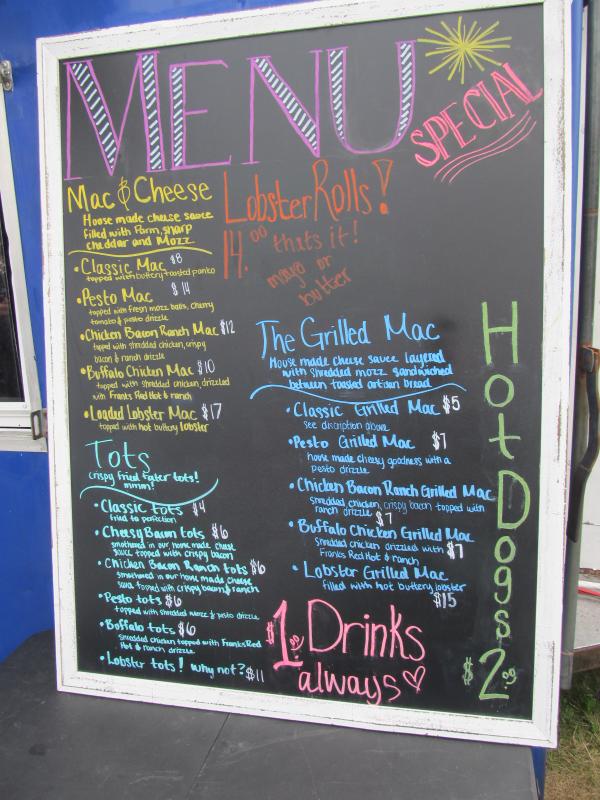 MENU
SPECIAL
Mac & Cheese
House made cheese sauce
filled with Parm, sharp
cheddar and Mozz
• Classic Mac $8
topped with buttery toasted panko
• Pesto Mac $14
topped with fresh mozz balls, cherry
tomato & pesto drizzle
• Chicken Bacon Ranch Mac $12
topped with shredded chicken, crispy
bacon & ranch drizzle
• Buffalo Chicken Mac $10
topped with shredded chicken, drizzled
with Franks Red Hot & ranch
• Loaded Lobster Mac $17
topped with hot buttery lobster
Tots
crispy fried tater tots!
mmm!
• Classic tots $4
fried to perfection
• Cheesy Bacon tots $6
smothered in our home made cheese
sauce topped with crispy bacon
• Chicken Bacon Ranch tots $6
smothered in our home made cheese
sauce topped with crispy bacon & ranch
• Pesto tots $6
topped with shredded mozz & pesto drizzle
• Buffalo tots $6
shredded chicken topped with Franks Red
Hot & ranch drizzle
• Lobster tots! why not? $11
Lobster Rolls!
14.00 thats it!
mayo or
butter
The Grilled Mac
House made cheese sauce layered
with shredded mozz sandwiched
between toasted artisan bread
• Classic Grilled Mac $5
see discription above
• Pesto Grilled Mac $7
house made cheesy goodness with a
pesto drizzle
• Chicken Bacon Ranch Grilled Mac
shredded chicken, crispy bacon topped with
ranch drizzle $7
• Buffalo Chicken Grilled Mac
shredded chicken drizzled with $7
Franks Red Hot & ranch
• Lobster Grilled Mac
filled with hot buttery lobster
$15
$1.00 Drinks
always
Hot Dogs
$2.00